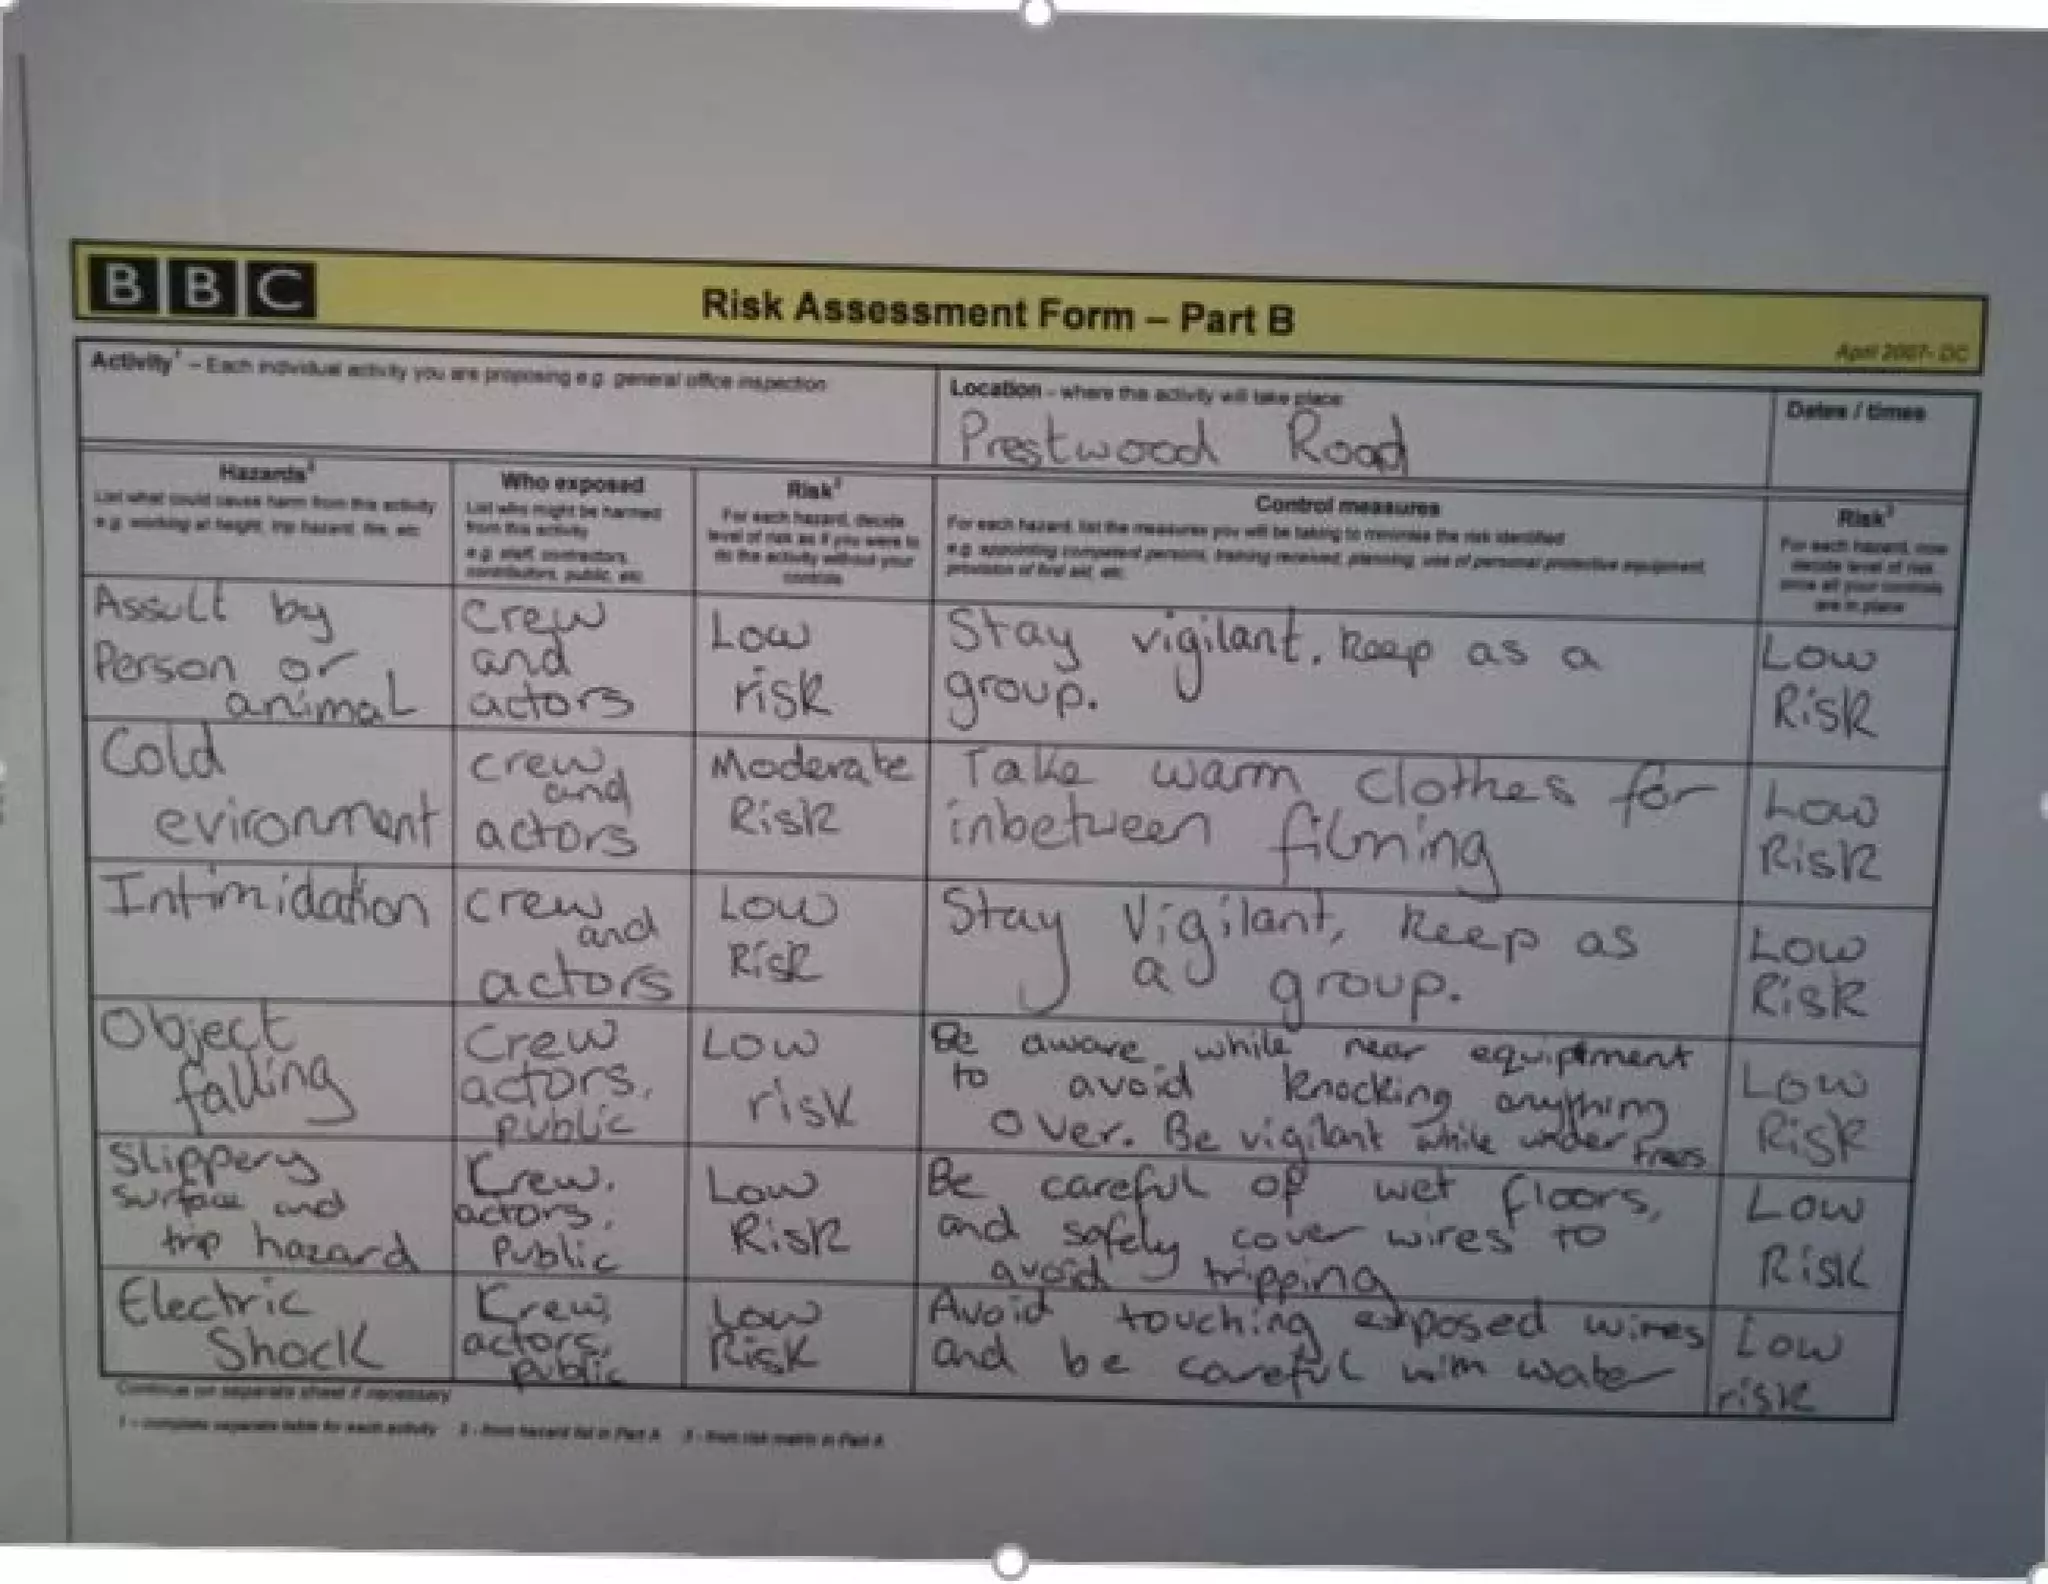 BBC
Risk Assessment Form – Part B
April 2007- DC
Activity¹ – Each individual activity you are proposing e.g. general office inspection
Location - where this activity will take place
Prestwood Road
Dates / times
Hazards²
List what could cause harm from this activity
e.g. working at height, trip hazard, fire, etc
Who exposed
List who might be harmed
from this activity
e.g. staff, contractors,
contributors, public, etc
Risk³
For each hazard, decide
level of risk as if you were to
do the activity without your
controls
Control measures
For each hazard, list the measures you will be taking to minimise the risk identified
e.g. appointing competent persons, training received, planning, use of personal protective equipment,
provision of first aid, etc
Risk³
For each hazard, now
decide level of risk
once all your controls
are in place
Assult by
Person or
animal
Crew
and
actors
Low
risk
Stay vigilant. keep as a
group.
Low
Risk
Cold
evironment
crew
and
actors
Moderate
Risk
Take warm clothes for
inbetween filming
Low
Risk
Intimidation
crew
and
actors
Low
Risk
Stay Vigilant, keep as
a group.
Low
Risk
Object
falling
Crew
actors,
public
Low
risk
Be aware while near equiptment
to avoid knocking anything
over. Be vigilant while under trees
Low
Risk
Slippery
surface and
trip hazard
Crew,
actors,
Public
Low
Risk
Be careful of wet floors,
and safely cover wires to
avoid tripping
Low
Risk
Electric
Shock
Crew,
actors,
public
Low
Risk
Avoid touching exposed wires
and be careful with water
Low
risk
Continue on separate sheet if necessary
1 – complete separate table for each activity 2 - from hazard list in Part A 3 - from risk matrix in Part A